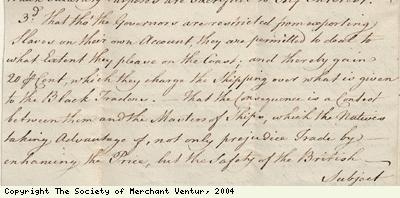 3.d That tho' the Governors are restricted from exporting
Slaves on their own Account, they are permitted to deal to
what Extent they please on the Coast; and thereby gain
20 ₱ Cent, which they charge the Shipping over what is given
to the Black Traders. — That the Consequence is a Contest
between them and the Masters of Ships, which the Natives
taking Advantage of, not only prejudice Trade by
enhancing the Price, but the Safety of the British —
Subject
Copyright The Society of Merchant Ventur, 2004